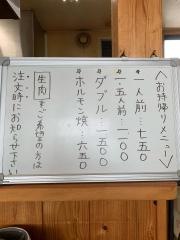 〈お持帰りメニュー〉
一人前…七五〇
一.五人前…一一〇〇
ダブル…一五〇〇
ホルモン焼…六五〇
生肉をご希望の方は
注文時にお知らせ下さい